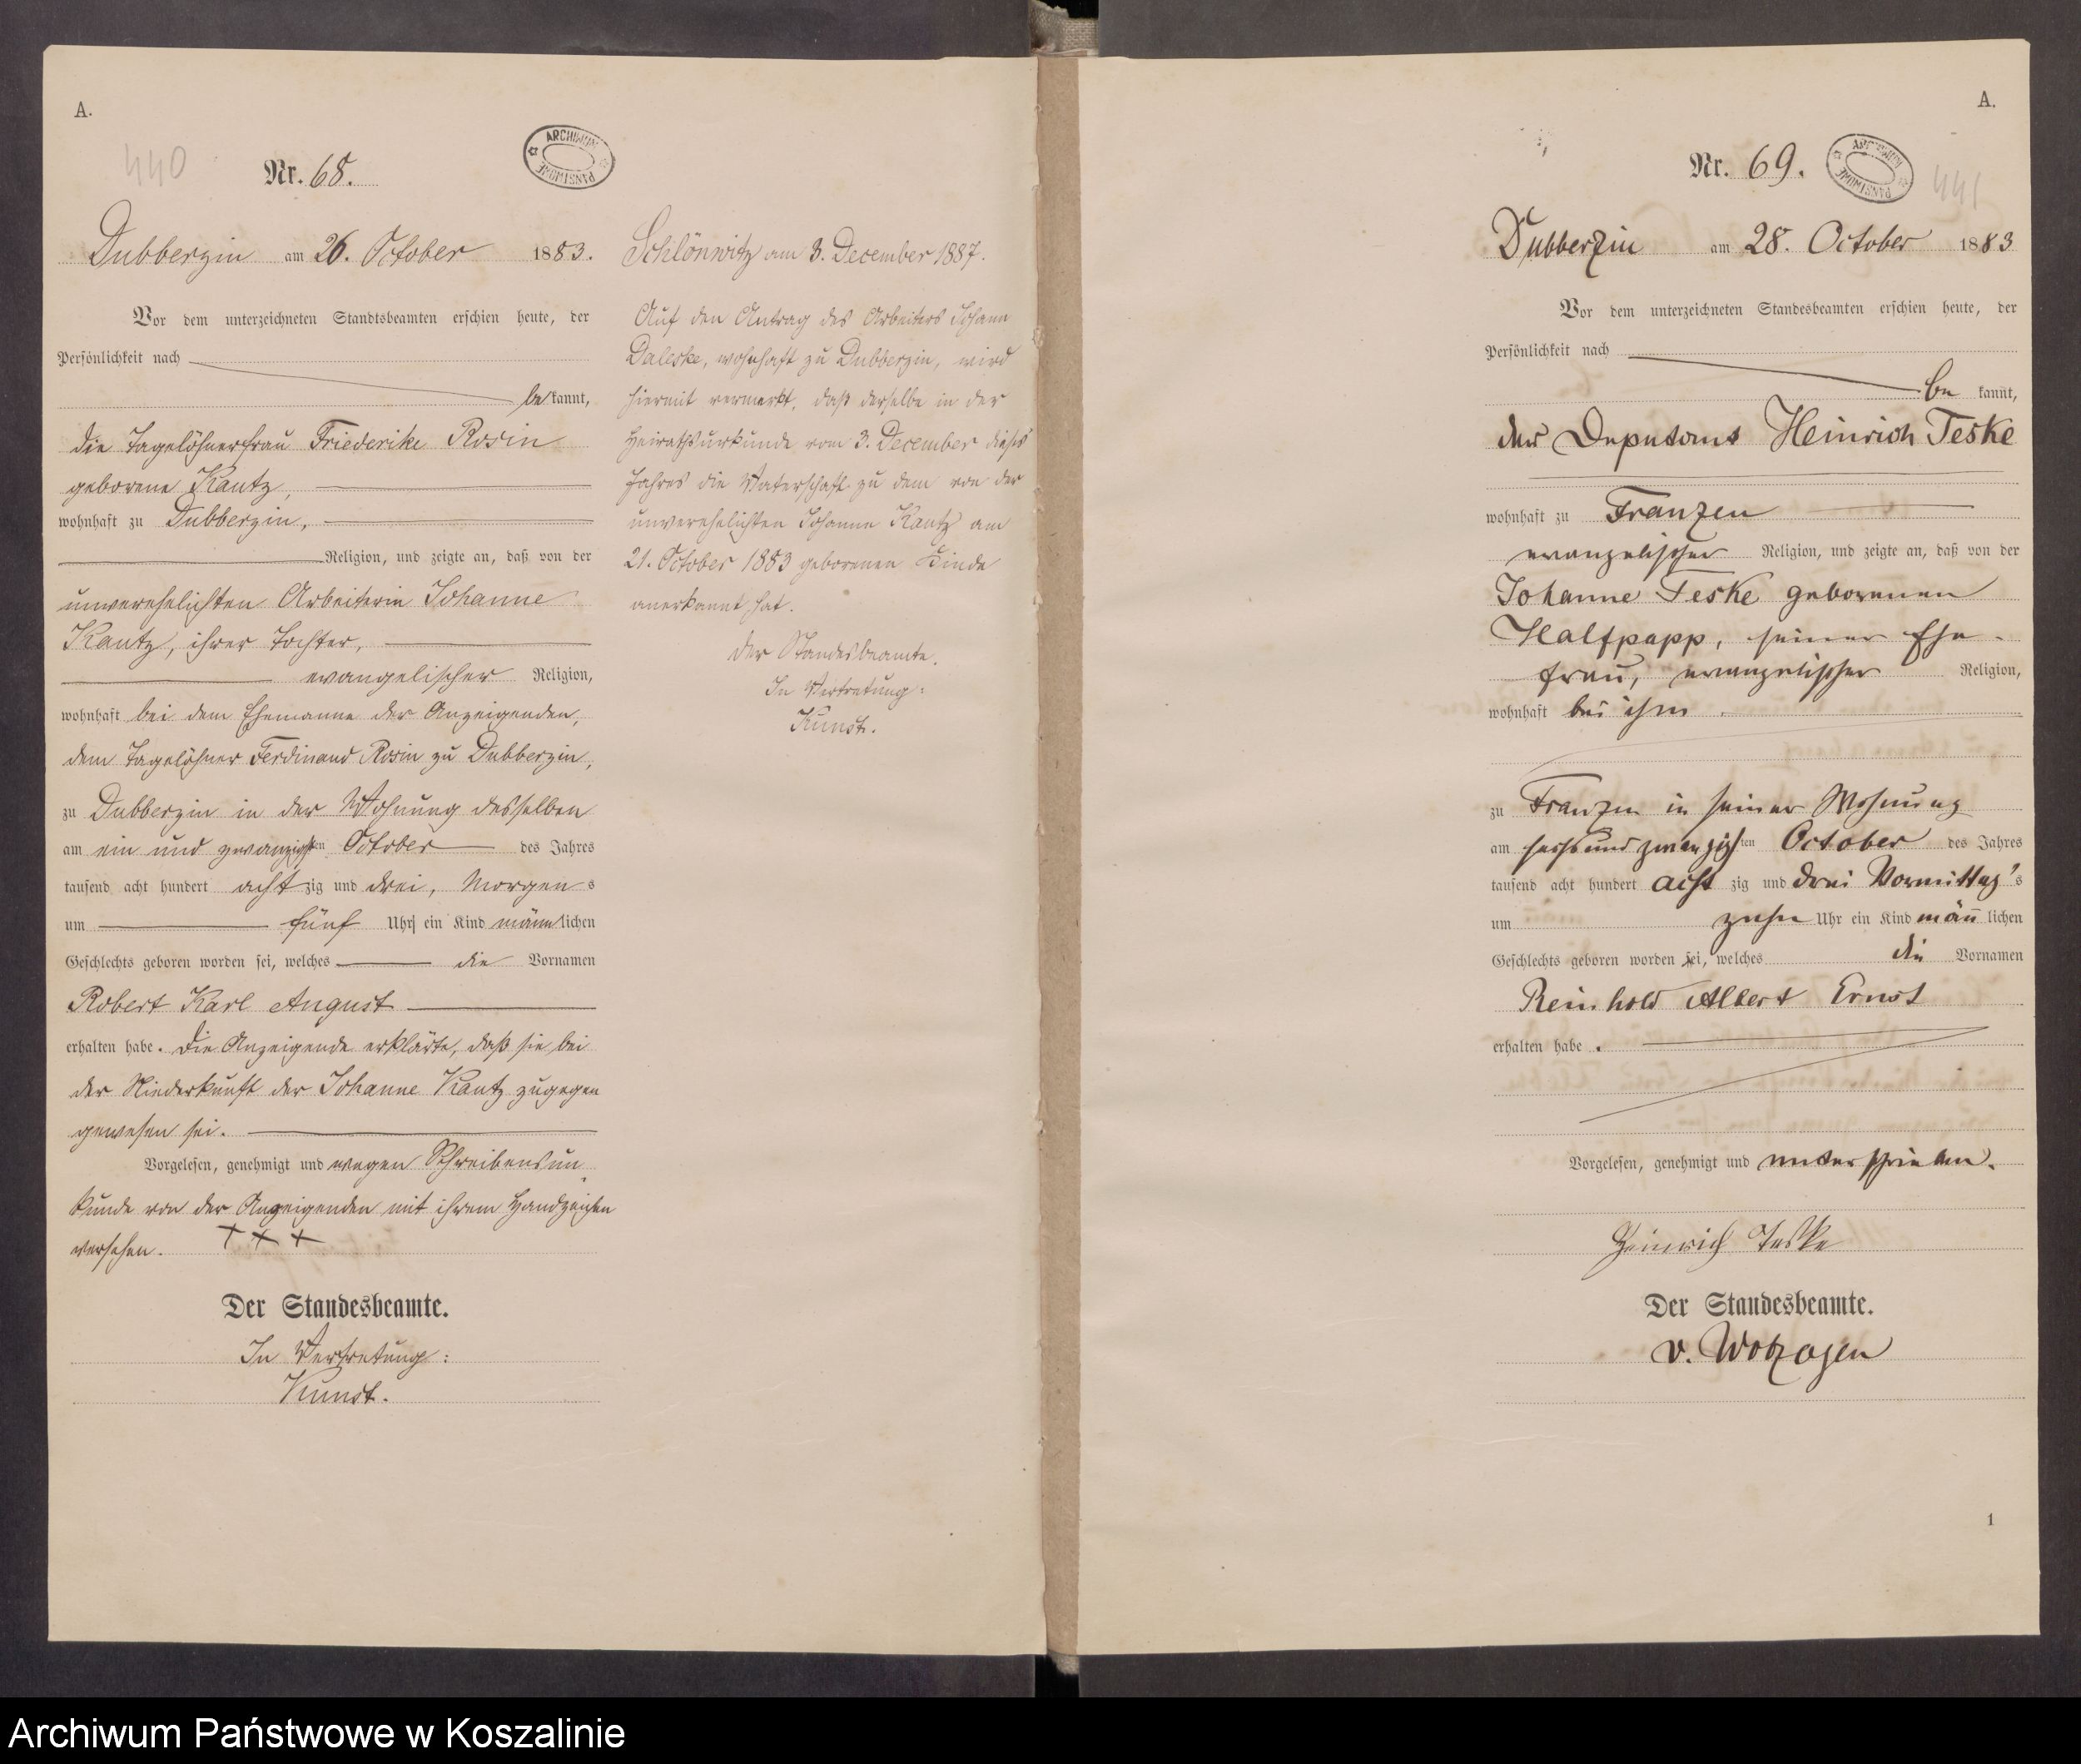 A.
440
Nr. 68.
ARCHIWUM PAŃSTWOWE
Dubberzin am 26. October 1883.
Vor dem unterzeichneten Standtsbeamten erschien heute, der
Persönlichkeit nach
be kannt,
die Tagelöhnerfrau Friederike Rosin
geborene Kautz,
wohnhaft zu Dubberzin,
Religion, und zeigte an, daß von der
unverehelichten Arbeiterin Johanne
Kautz, ihrer Tochter,
evangelischer Religion,
wohnhaft bei dem Ehemanne der Anzeigenden,
dem Tagelöhner Ferdinand Rosin zu Dubberzin,
zu Dubberzin in der Wohnung desselben
am ein und zwanzigsten October des Jahres
tausend acht hundert acht zig und drei, Morgens
um fünf Uhr ein Kind männlichen
Geschlechts geboren worden sei, welches die Vornamen
Robert Karl August
erhalten habe. Die Anzeigende erklärte, daß sie bei
der Niederkunft der Johanne Kautz zugegen
gewesen sei.
Vorgelesen, genehmigt und wegen Schreibensun
kunde von der Anzeigenden mit ihrem Handzeichen
versehen. + + +
Der Standesbeamte.
In Vertretung:
Kunst.
Schlönwitz am 3. December 1887.
Auf den Antrag des Arbeiters Johann
Daleske, wohnhaft zu Dubberzin, wird
hiermit vermerkt, daß derselbe in der
Heirathsurkunde vom 3. December dieses
Jahres die Vaterschaft zu dem von der
unverehelichten Johanne Kautz am
21. October 1883 geborenen Kinde
anerkannt hat.
Der Standesbeamte.
In Vertretung:
Kunst.
A.
Nr. 69.
ARCHIWUM PAŃSTWOWE
441
Dubberzin am 28. October 1883
Vor dem unterzeichneten Standesbeamten erschien heute, der
Persönlichkeit nach
be kannt,
der Deputant Heinrich Teske
wohnhaft zu Franzen
evangelischer Religion, und zeigte an, daß von der
Johanne Teske geborenen
Halfpapp, seiner Ehe-
frau, evangelischer Religion,
wohnhaft bei ihm
zu Franzen in seiner Wohnung
am sechsundzwanzigsten October des Jahres
tausend acht hundert acht zig und drei Vormittag's
um zehn Uhr ein Kind männ lichen
Geschlechts geboren worden sei, welches die Vornamen
Reinhold Albert Ernst
erhalten habe.
Vorgelesen, genehmigt und unterschrieben.
Heinrich Teske
Der Standesbeamte.
v. Wolzogen
1
Archiwum Państwowe w Koszalinie